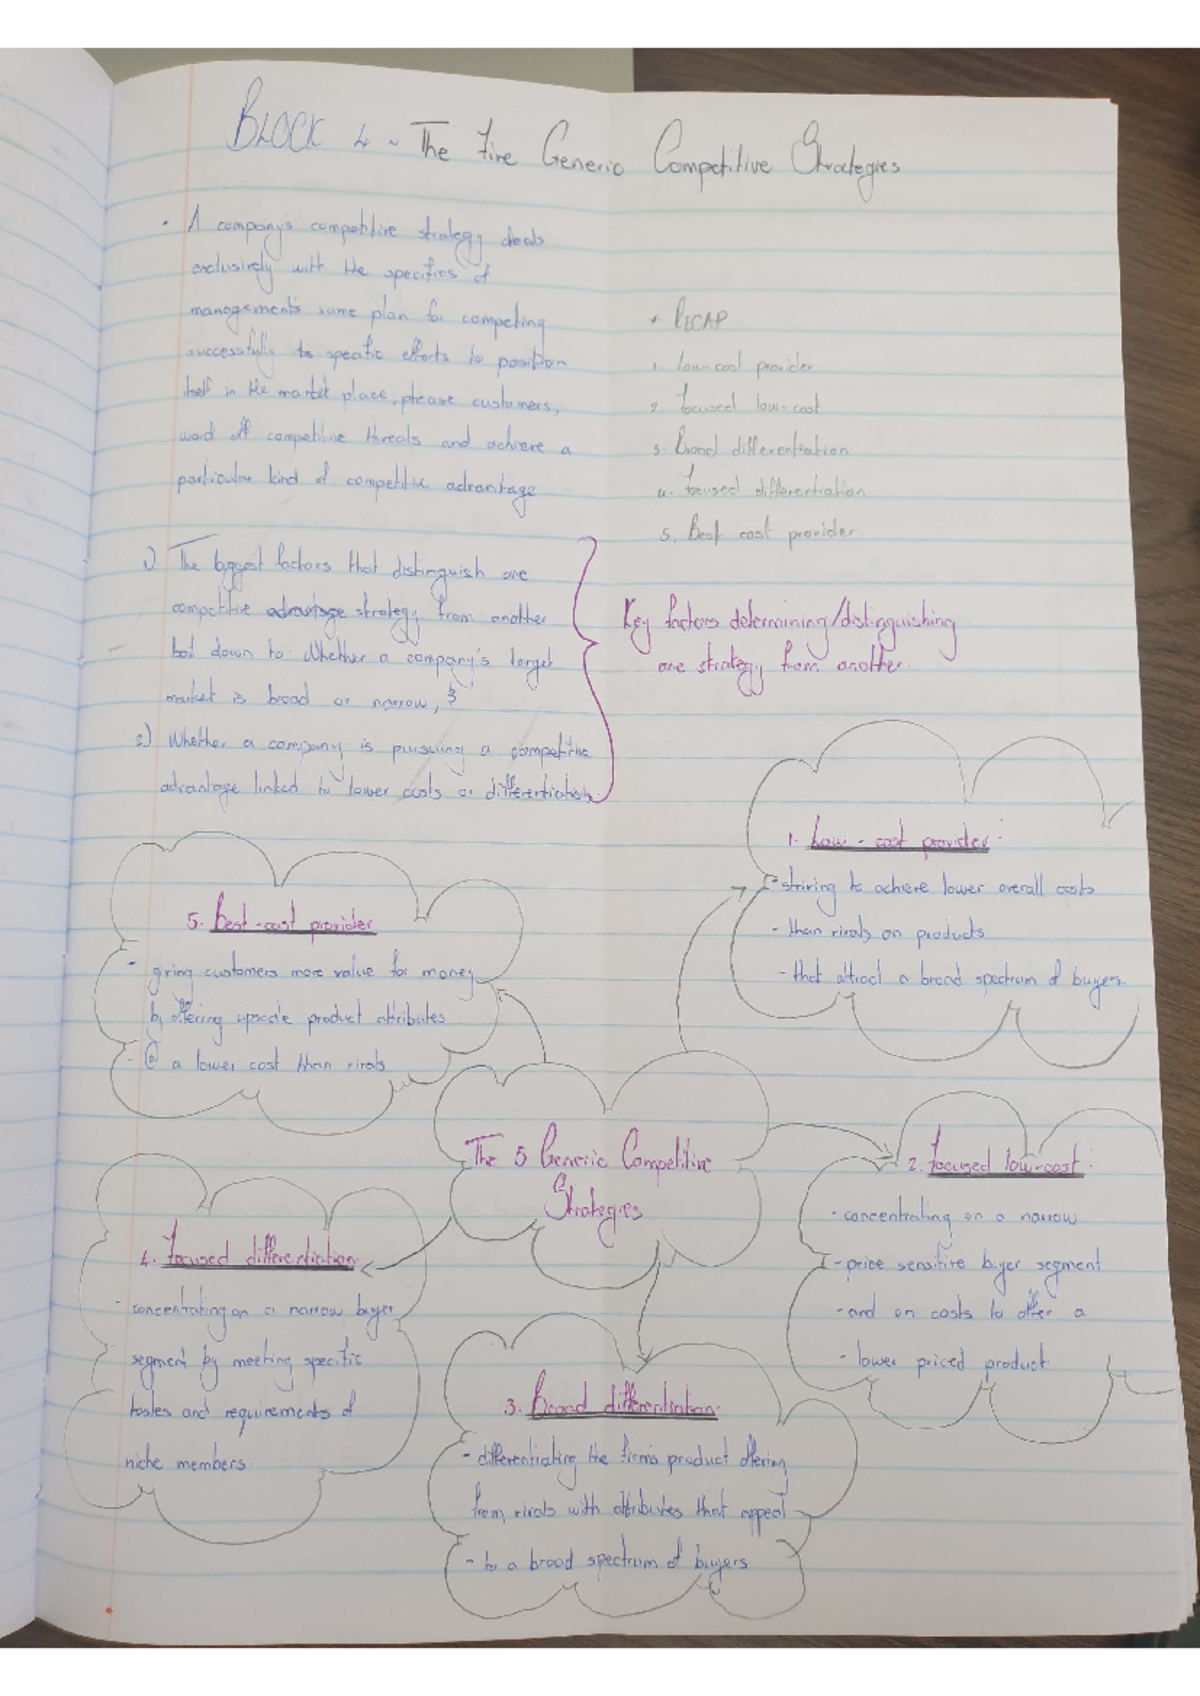 BLOCK 4 ~ The Five Generic Competitive Strategies
• A companys competitive strategy deals
exclusively with the specifics of
managements same plan for competing
successfully to specific efforts to position
itself in the market place, please customers,
ward off competitive threats and achieve a
particular kind of competitive advantage
* RECAP
1. low-cost provider
2. focused low-cost
3. Broad differentiation
4. focused differentiation
5. Best cost provider
1) The biggest factors that distinguish one
competitive advantage strategy from another
boil down to: Whether a company's target
market is broad or narrow, &
2) Whether a company is pursuing a competitive
advantage linked to lower costs or differentiation.
Key factors determining/distinguishing
one strategy from another.
1. Low-cost provider:
- striving to achieve lower overall costs
- than rivals on products
- that attract a broad spectrum of buyers.
5. Best-cost provider
- giving customers more value for money
by offering upscale product attributes
- @ a lower cost than rivals
The 5 Generic Competitive
Strategies
2. focused low-cost:
- concentrating on a narrow
- price sensitive buyer segment
- and on costs to offer a
- lower priced product
4. focused differentiation
- concentrating on a narrow buyer
segment by meeting specific
tastes and requirements of
niche members
3. Broad differentiation
- differentiating the firms product offering
from rivals with attributes that appeal
- to a broad spectrum of buyers